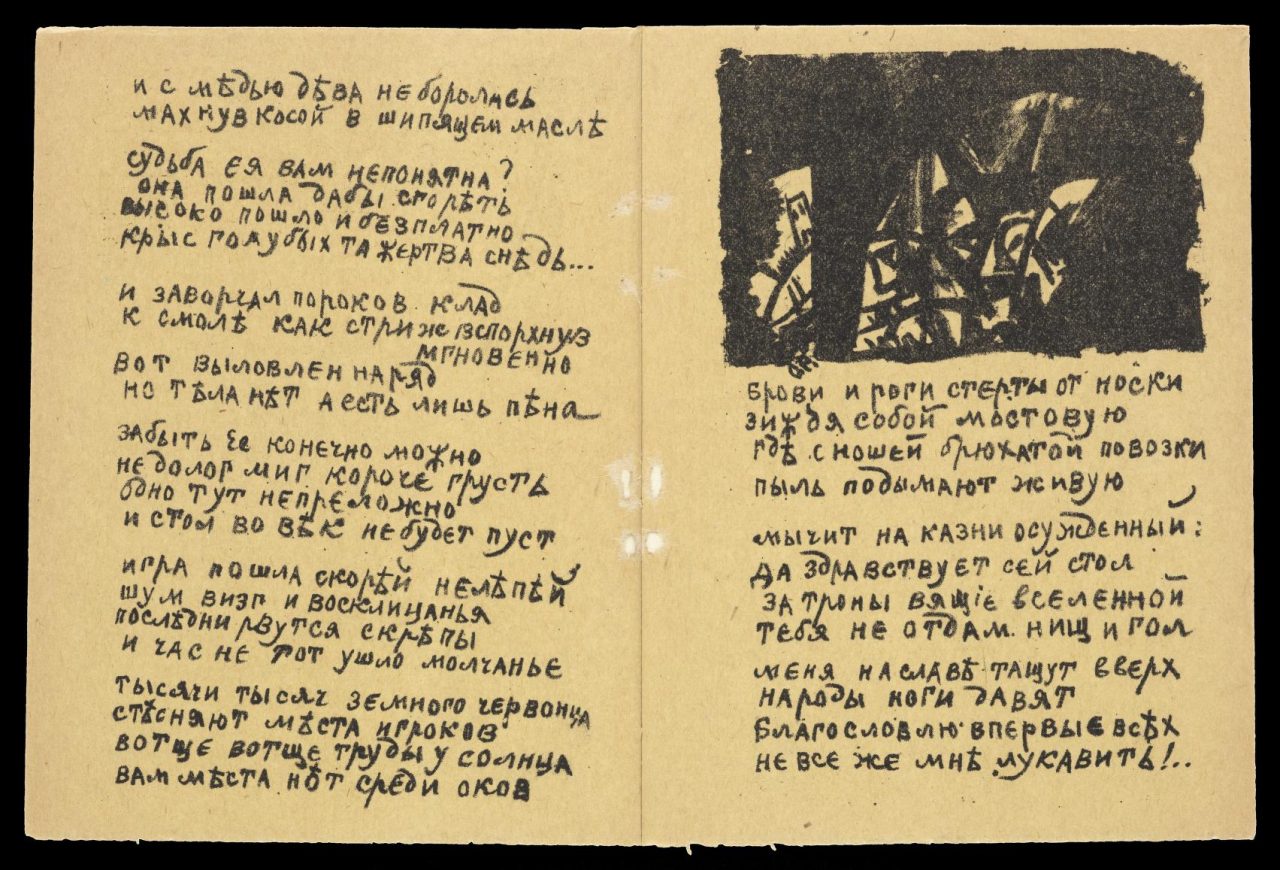 и с мѣдью дѣва не боролась
махнув косой в шипящем маслѣ
судьба ея вам непонятна?
она пошла дабы сгорѣть
высоко пошло и безплатно
крыс голубых та жертва снѣдь...
и заворчал пороков клад
к смолѣ как стриж вспорхнув
мгновенно
вот выловлен наряд
но тѣла нѣт а есть лишь пѣна
забыть ее конечно можно
недолог миг короче грусть
одно тут непреложно
и стол во вѣк не будет пуст
игра пошла скорѣй нелѣпѣй
шум визг и восклицанья
послѣдни рвутся скрѣпы
и час не тот ушло молчанье
тысячи тысяч земного червонца
стѣсняют мѣста игроков
вотще вотще труды у солнца
вам мѣста нѣт среди оков
брови и роги стерты от носки
зиждя собой мостовую
гдѣ с ношей брюхатой повозки
пыль подымают живую
мычит на казни осужденный:
да здравствует сей стол
за троны вящіе вселенной
тебя не отдам нищ и гол
меня на славѣ тащут вверх
народы ноги давят
благословлю впервые всѣх
не все же мнѣ лукавить!..